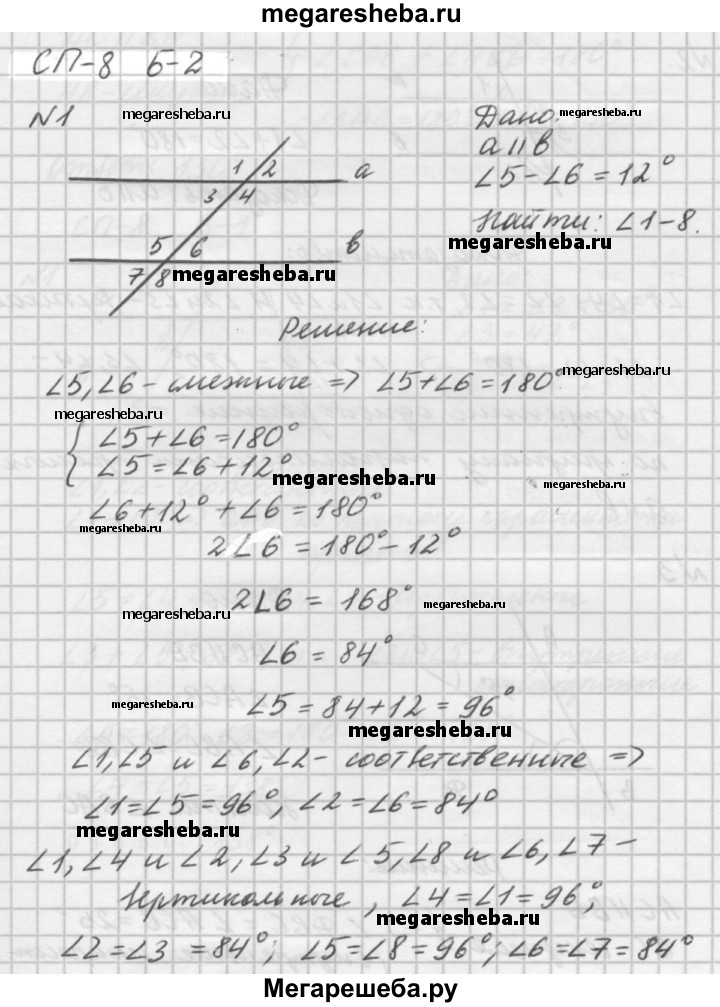 megaresheba.ru
СП-8 Б-2
№1
megaresheba.ru
Дано: megaresheba.ru
a ∥ в
∠5-∠6=12°
Найти: ∠1-8.
megaresheba.ru
1 2 a
3 4
5 6 в
7 8 megaresheba.ru
Решение:
∠5,∠6-смежные => ∠5+∠6=180°
megaresheba.ru
megaresheba.ru
∠5+∠6=180°
∠5=∠6+12°
megaresheba.ru
megaresheba.ru
∠6+12°+∠6=180°
megaresheba.ru
2∠6=180°-12°
2∠6= 168°
megaresheba.ru
megaresheba.ru
∠6=84°
megaresheba.ru
∠5=84+12=96°
megaresheba.ru
∠1,∠5 и ∠6,∠2-соответственные =>
∠1=∠5=96°, ∠2=∠6=84°
megaresheba.ru
∠1,∠4 и ∠2,∠3 и ∠5,∠8 и ∠6,∠7-
вертикольные, ∠4=∠1=96°;
megaresheba.ru
∠2=∠3 =84°; ∠5=∠8=96°; ∠6=∠7=84°
Мегарешеба.ру